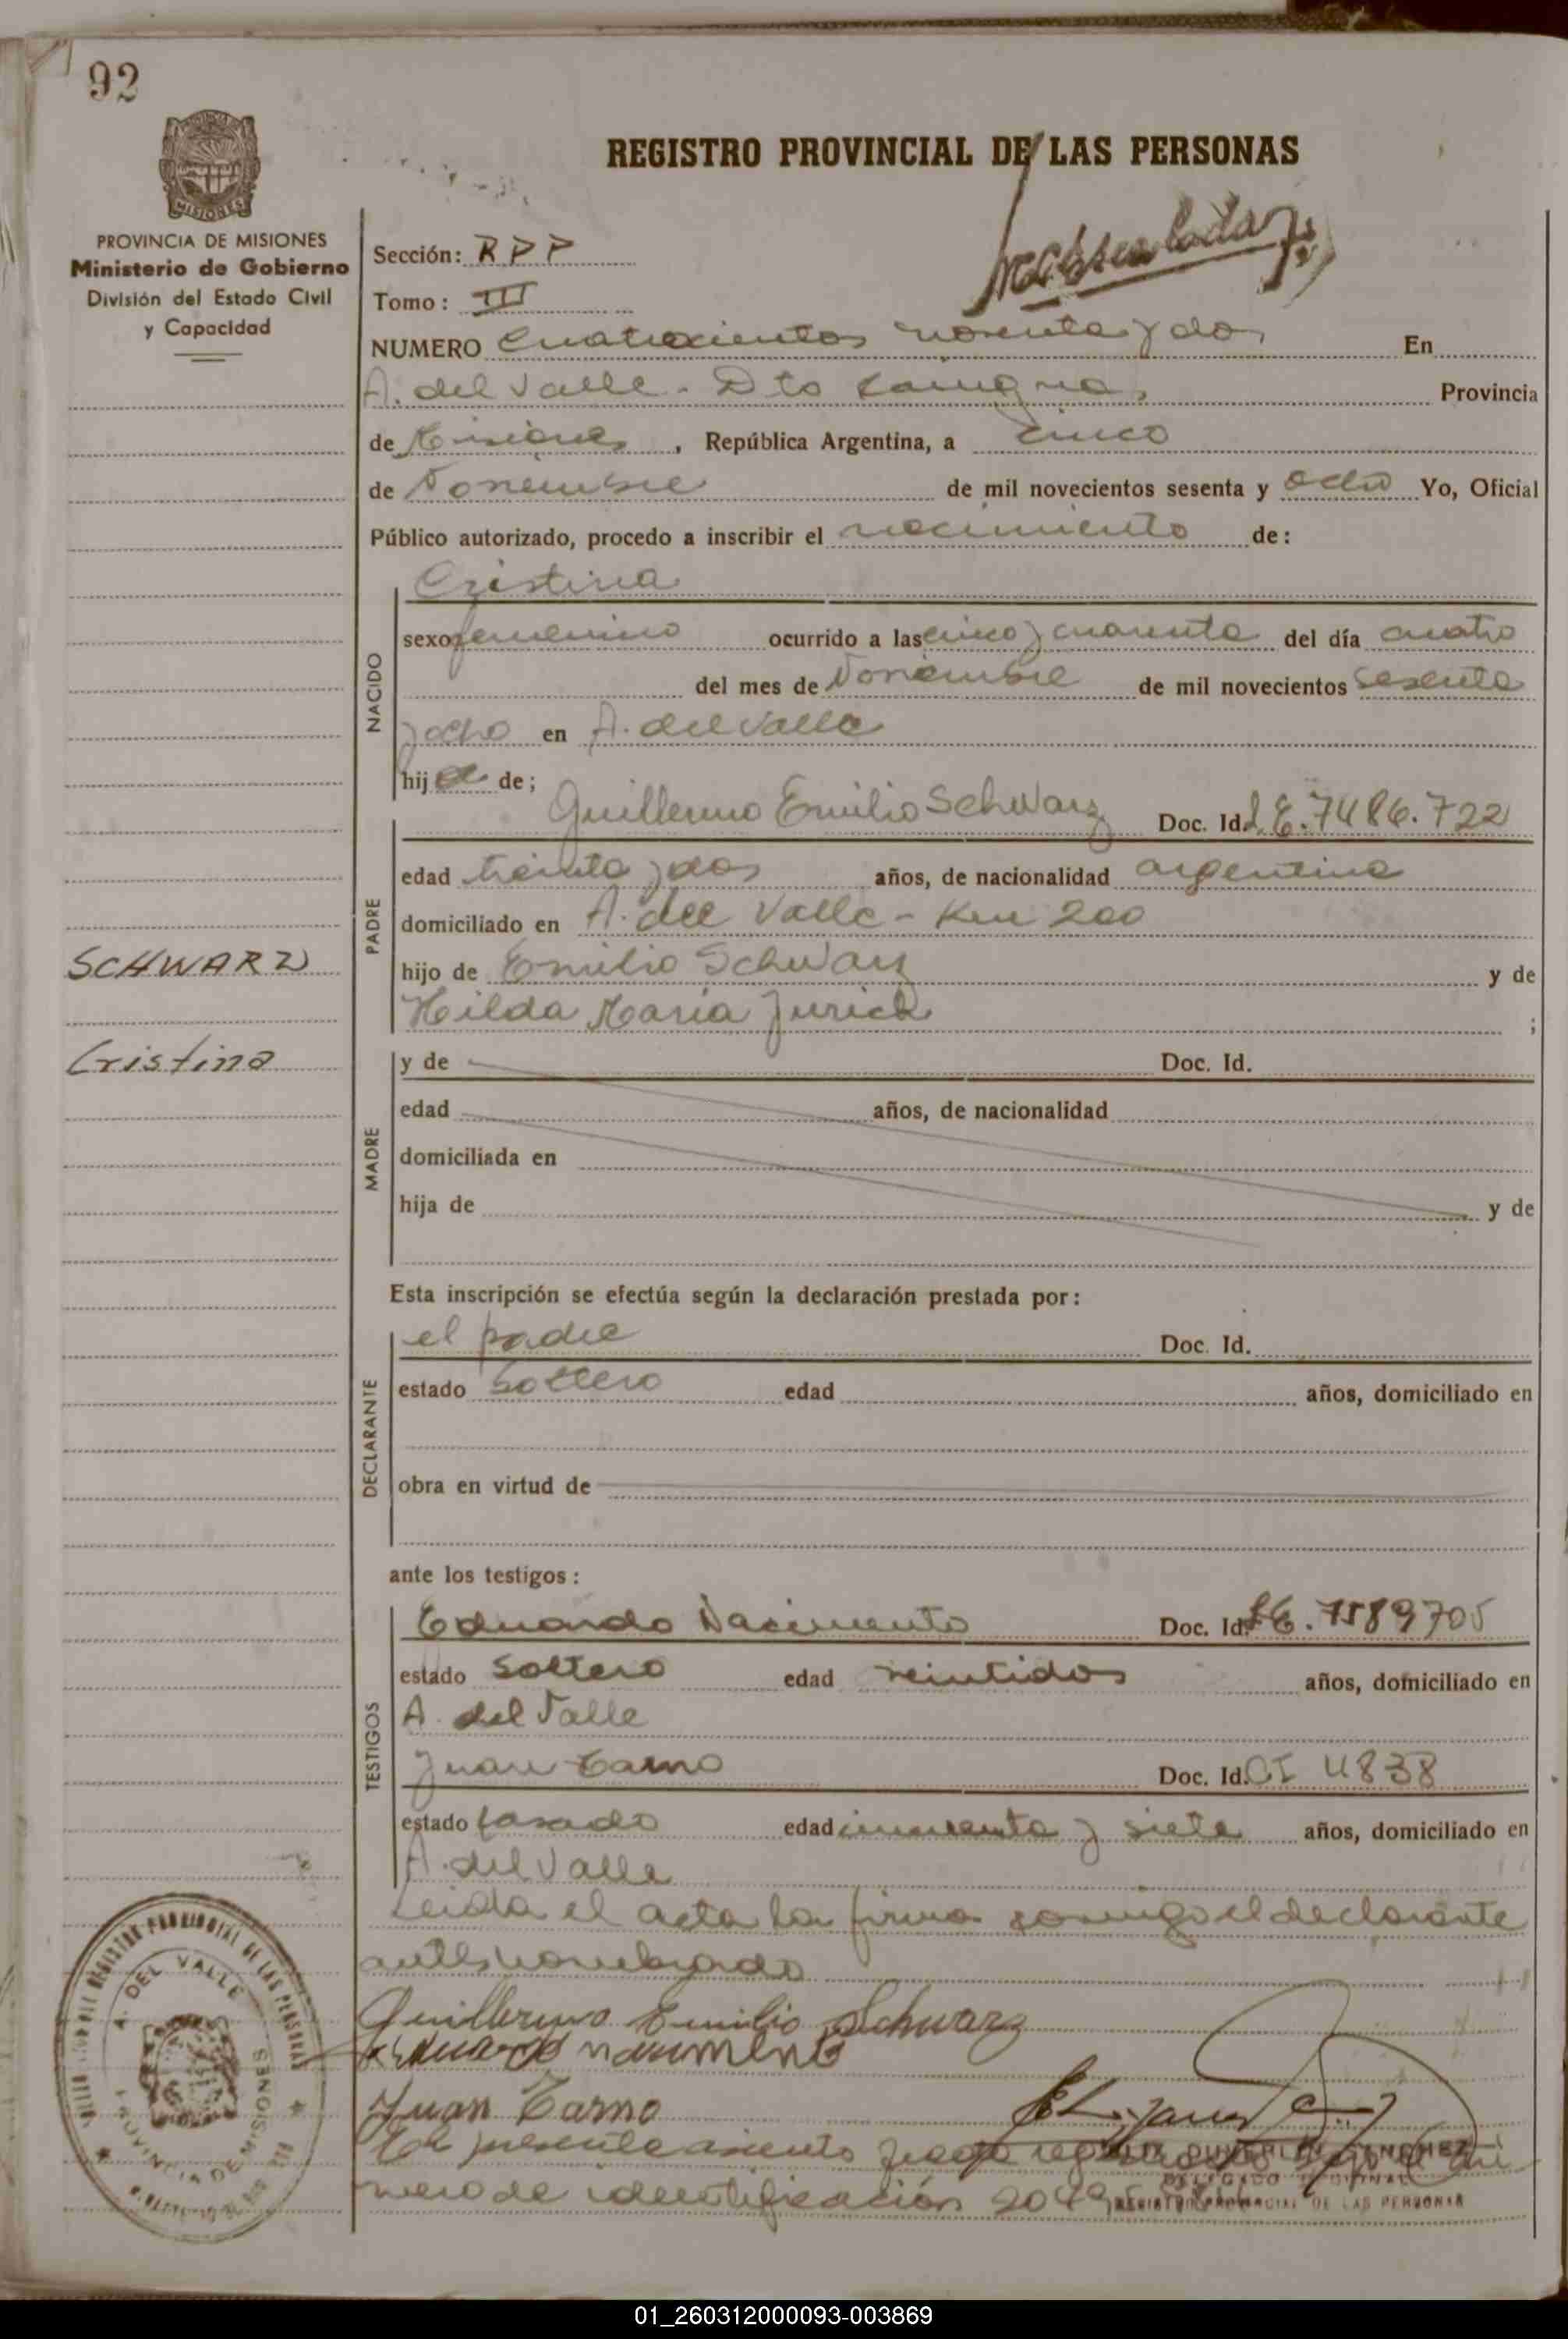 92
MISIONES
PROVINCIA DE MISIONES
Ministerio de Gobierno
División del Estado Civil
y Capacidad
REGISTRO PROVINCIAL DE LAS PERSONAS
Sección: RPP
Tomo: III
NUMERO Cuatrocientos noventa y dos En
A. del Valle - Dto Cainguas Provincia
de Misiones, República Argentina, a cinco
de Noviembre de mil novecientos sesenta y ocho Yo, Oficial
Público autorizado, procedo a inscribir el nacimiento de:
NACIDO
Cristina
sexo femenino ocurrido a las cinco y cuarenta del día cuatro
del mes de Noviembre de mil novecientos sesenta
y ocho en A. del Valle
hija de;
PADRE
Guillermo Emilio Schwarz Doc. Id. L.E. 7486.722
edad treinta y dos años, de nacionalidad argentina
domiciliado en A. del Valle - Km 200
hijo de Emilio Schwarz y de
Hilda María Jurick ;
SCHWARZ
Cristina
MADRE
y de Doc. Id.
edad años, de nacionalidad
domiciliada en
hija de y de
Esta inscripción se efectúa según la declaración prestada por:
DECLARANTE
el padre Doc. Id.
estado Soltero edad años, domiciliado en
obra en virtud de
ante los testigos:
TESTIGOS
Eduardo Nacimento Doc. Id. L.E. 7589705
estado Soltero edad veintidos años, domiciliado en
A. del Valle
Juan Doc. Id. CI 4838
estado Casado edad cincuenta y siete años, domiciliado en
A. del Valle
Leida el acta la firma conmigo el declarante
antes nombrado
Guillermo Emilio Schwarz
Eduardo nacimento
Juan
El presente asiento queda registrado bajo el nú
mero de identificación
SANCHEZ
DELEGADO
REGISTRO PROVINCIAL DE LAS PERSONAS
REGISTRO PROVINCIAL DE LAS PERSONAS
A. DEL VALLE
PROVINCIA DE MISIONES
01_260312000093-003869